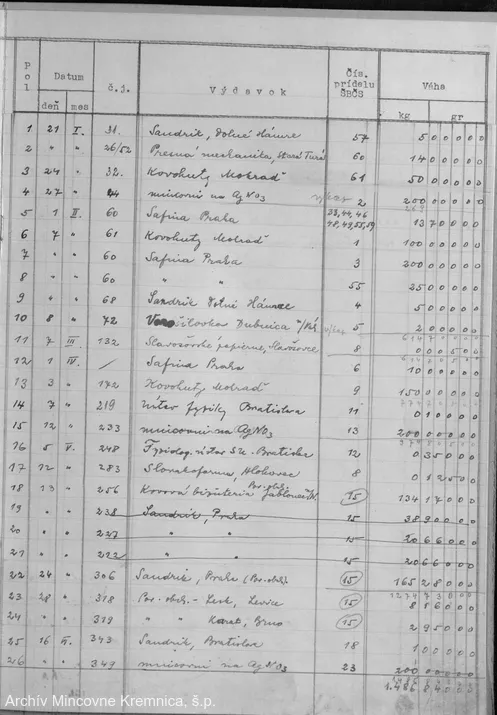 Pol Datum č.j. Výdavok Čís. prídelu ŠBČS Váha
deň mes kg gr
1 21 I. 31. Sandrik, Dolné Hámre 57 5 0 0 0 0 0
2 " " 26/52 Presná mechanika, Stará Turá 60 1 4 0 0 0 0
3 24 " 32. Kovohuty Mokraď 61 50 0 0 0 0
4 27 " 44 mincovni na AgNO3 2 200 0 0 0 0
5 1 II. 60 Safina Praha 1 3 7 0 0 0 0
6 7 " 61 Kovohuty Mokraď 1 100 0 0 0 0
7 " " 60 Safina Praha 3 200 0 0 0 0
8 " " 60 " " 55 25 0 0 0 0
9 " " 68 Sandrik Dolné Hámre 4 5 0 0 0 0 0
10 8 " 72 Dubnica n/Váh. 5 2 0 0 0 0 0
11 7 III. 132 Slavošovské papierne, Slavošovce 8 0 0 0 5 0 0
12 1 IV. / Safina Praha 6 10 0 0 0 0
13 3 " 172 Kovohuty Mokraď 9 150 0 0 0 0
14 7 " 219 Ústav fyziky Bratislava 11 0 1 0 0 0 0
15 12 " 233 mincovni na AgNO3 13 200 0 0 0 0
16 5 V. 248 Fysiolog. ústav Bratislava 12 0 3 5 0 0 0
17 12 " 283 Slovakofarma, Hlohovec 8 0 1 2 5 0 0
18 13 " 256 Kovová bižuteria Jablonec n/N. 15 13 4 1 7 0 0 0
19 " " 238 Sandrik, Praha 15 38 9 0 0 0 0
20 " " 227 " " 15 20 6 6 0 0 0
21 " " 222 " " 15 20 6 6 0 0 0
22 24 " 306 Sandrik, Praha 15 165 2 8 0 0 0
23 28 " 318 Levice 15 8 1 6 0 0 0
24 " " 319 " Brno 15 2 9 5 0 0 0
25 16 VI. 343 Sandrik, Bratislava 18 1 0 0 0 0 0
26 " " 349 mincovni na AgNO3 23 200 0 0 0 0
1.486 8 4 0 0 0
Archív Mincovne Kremnica, š.p.